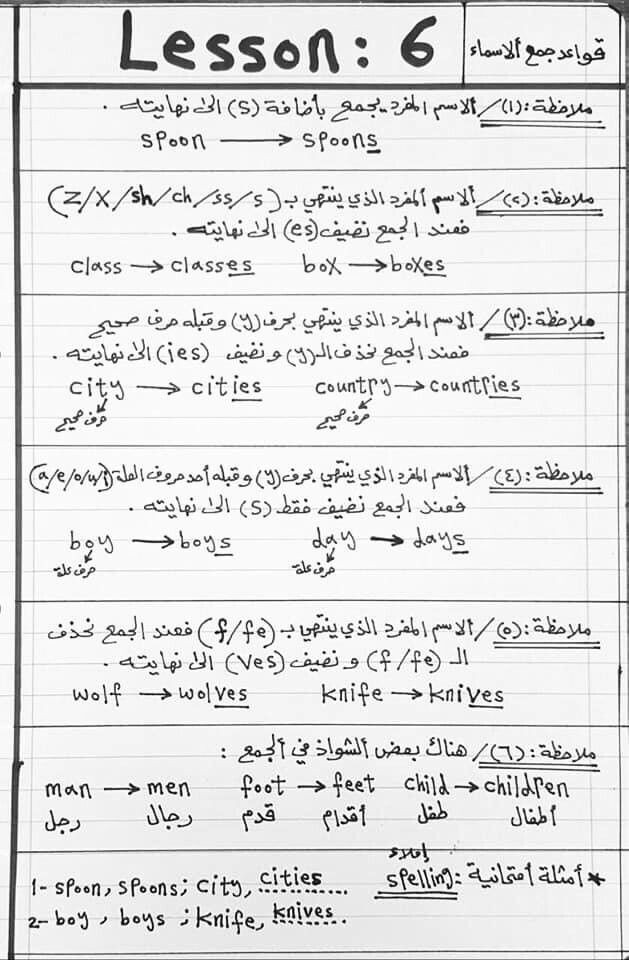 Lesson: 6
قواعد جمع الاسماء
ملاحظة: (١)/ الاسم المفرد يجمع بأضافة (S) الى نهايته .
spoon → spoons
ملاحظة: (٢)/ الاسم المفرد الذي ينتهي بـ (Z/X/sh/ch/ss/s)
فعند الجمع نضيف (es) الى نهايته .
class → classes box → boxes
ملاحظة: (٣)/ الاسم المفرد الذي ينتهي بحرف (y) وقبله حرف صحيح
فعند الجمع نحذف الـ (y) و نضيف (ies) الى نهايته .
city → cities country → countries
حرف صحيح حرف صحيح
ملاحظة: (٤)/ الاسم المفرد الذي ينتهي بحرف (y) وقبله أحد حروف العلة (a/e/o/u/i)
فعند الجمع نضيف فقط (S) الى نهايته .
boy → boys day → days
حرف علة حرف علة
ملاحظة: (٥)/ الاسم المفرد الذي ينتهي بـ (f/fe) فعند الجمع نحذف
الـ (f/fe) و نضيف (ves) الى نهايته .
wolf → wolves knife → knives
ملاحظة: (٦)/ هناك بعض الشواذ في الجمع :
man → men foot → feet child → children
رجل رجال قدم أقدام طفل أطفال
* أمثلة أمتحانية : spelling إملاء
1- spoon, spoons; city, cities
2- boy, boys; knife, knives.